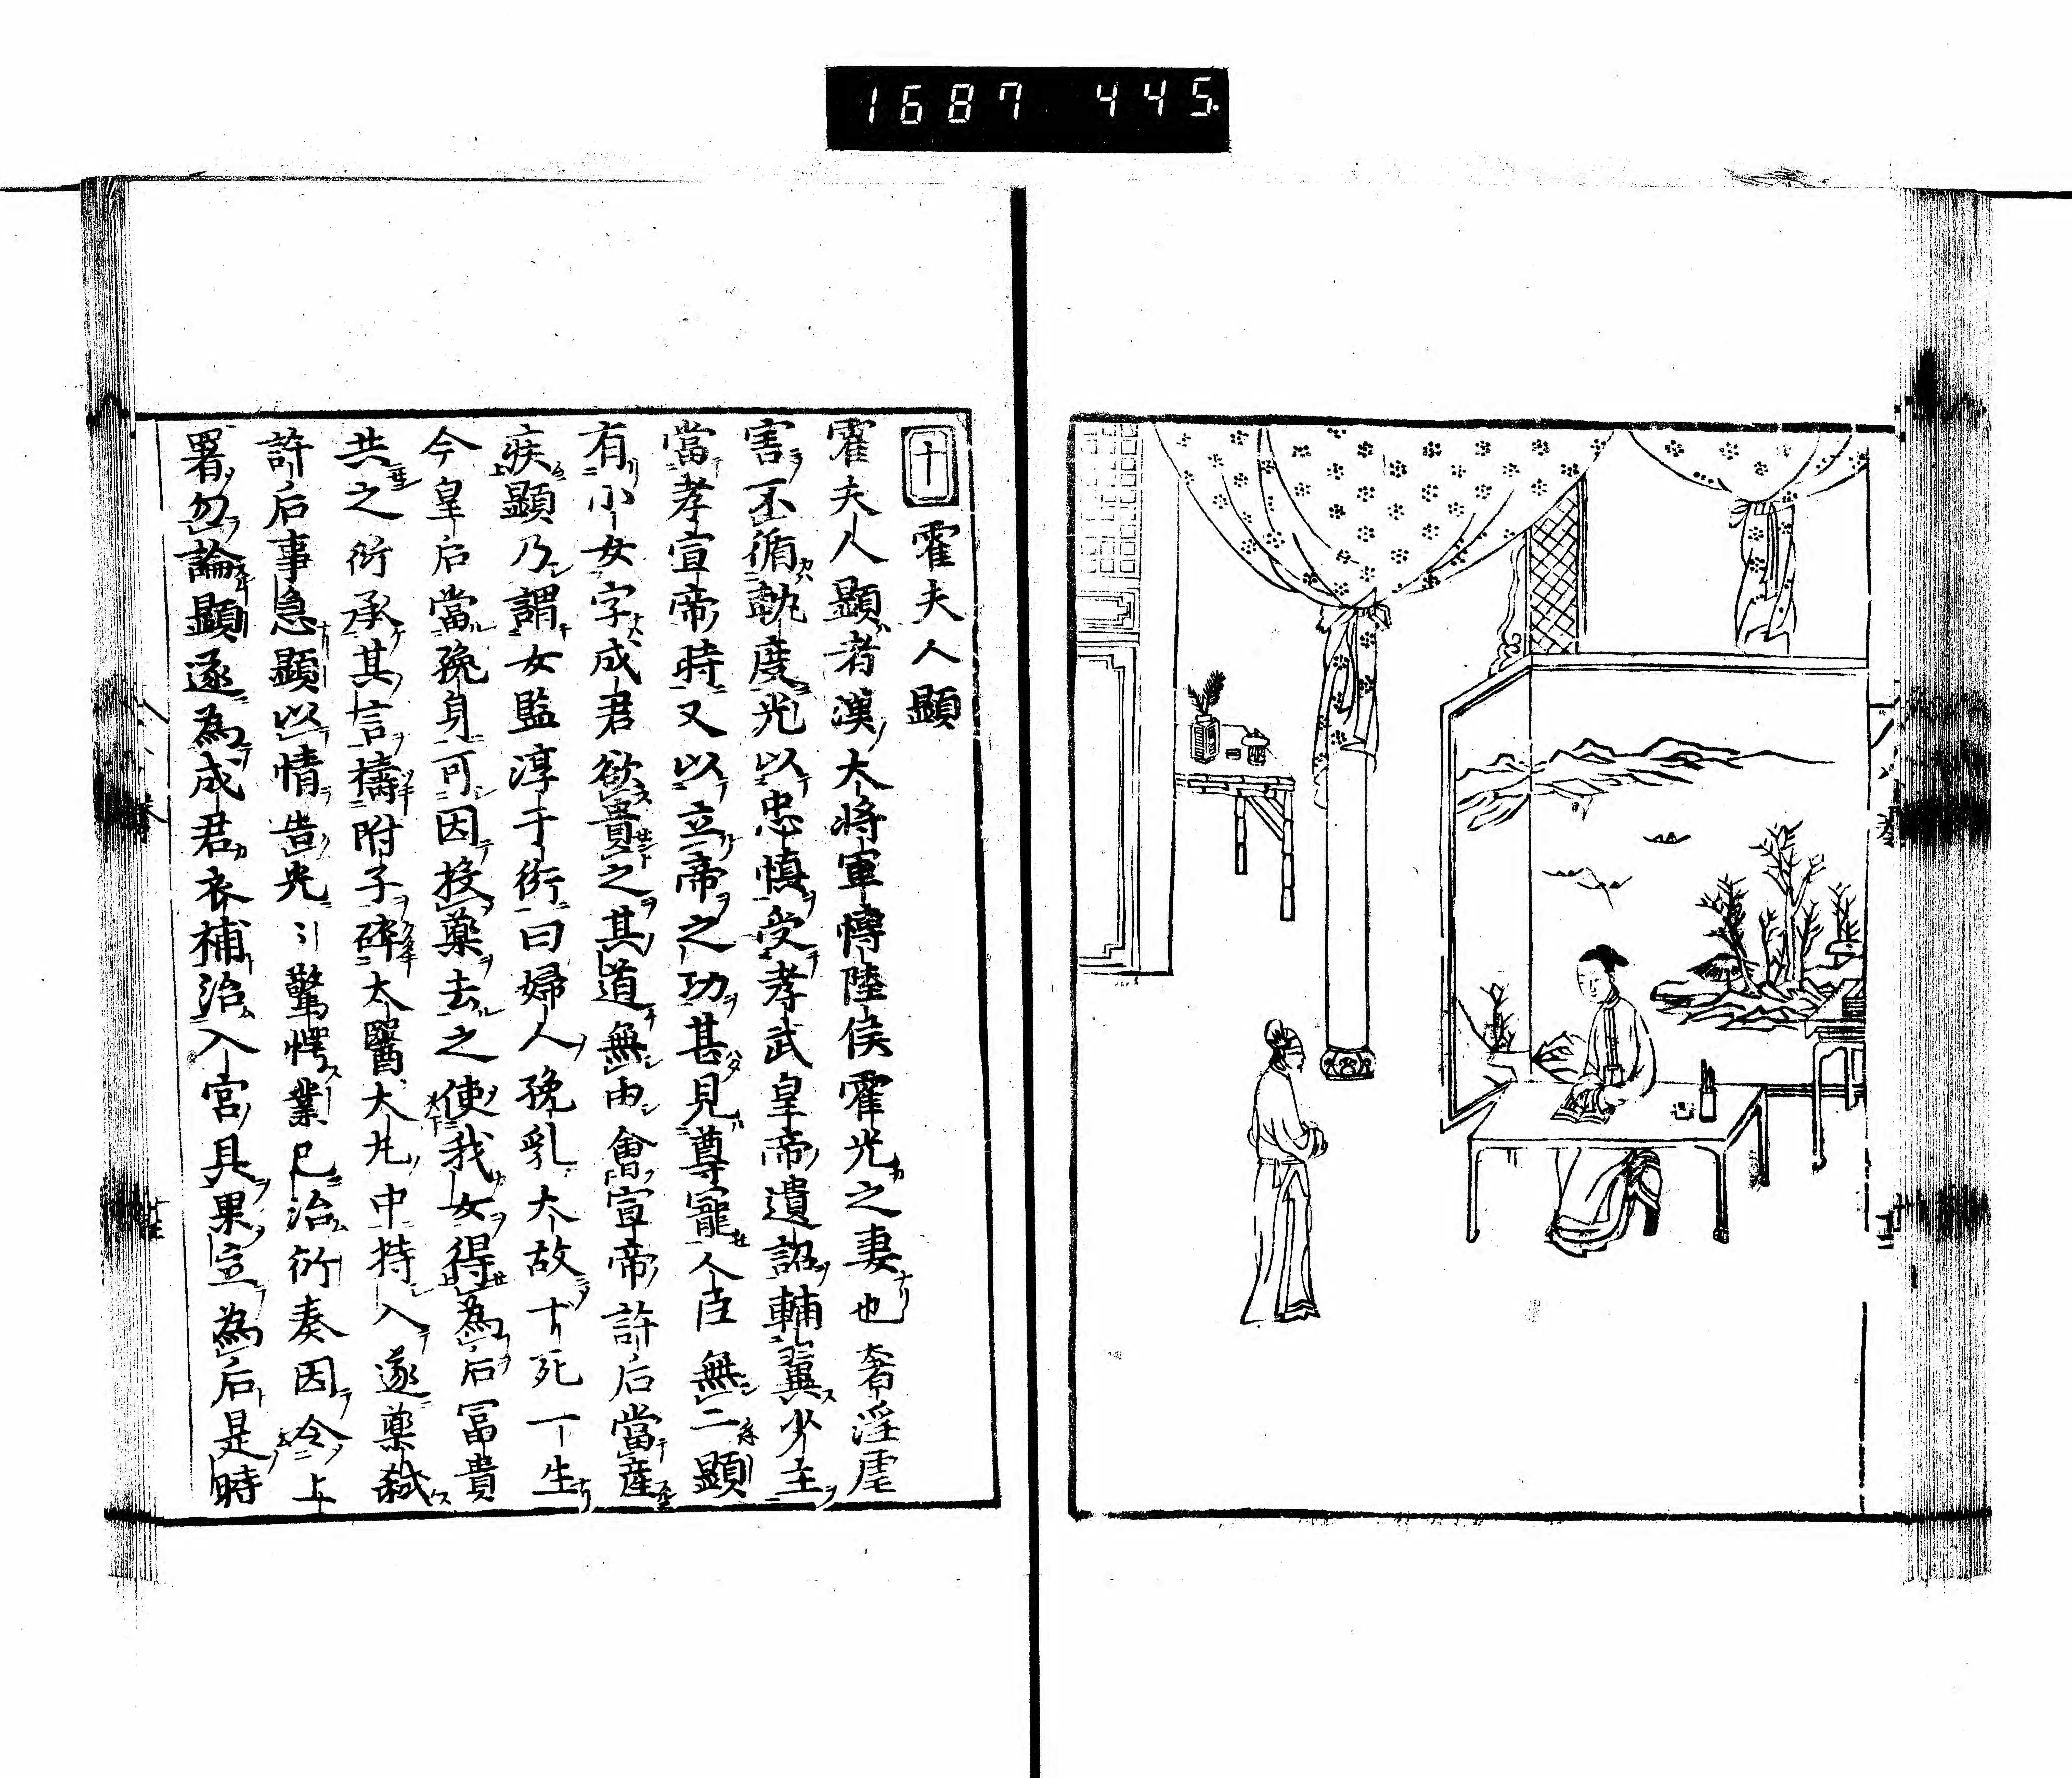 1687 445.
十 霍夫人顕
霍夫人顕者漢大将軍博陸侯霍光之妻也奢淫虐
害不循軌度光以忠慎受孝武皇帝遺詔輔翼少主
當孝宣帝時又以立帝之功甚見尊寵人臣無二顕
有小女字成君欲貴之其道無由會宣帝許后當産
疾顕乃謂女監淳于衍曰婦人娩乳大故十死一生
今皇后當娩身可因投薬去之使我女得為后冨貴
共之衍承其言擣附子碎太醫大丸中持入遂薬弑
許后事急顕以情告光引驚愕業已治衍奏因令上
署勿論顕遂為成君衣補治入宮具果立為后是時